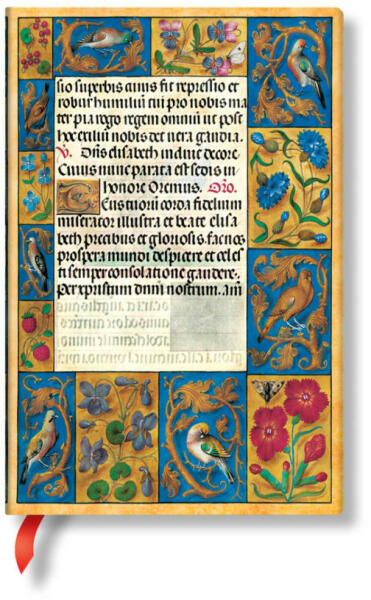 sio superbis cuius fit repressio et
robur humiliū tui pro nobis ma
ter pia rogo regem omniū ut post
hoc exiliū nobis det vera gaudia.
V. Dn̄s elisabeth induit decore
Cuius nunc parata est sedis in
honore Oremus. Oro.
Deus tuorū corda fidelium
miserator illustra et beate elisa
beth precibus et gloriosis. facnos
prospera mundi despicere et celes
ti semper consolatione gaudere.
Per xpistum dnm̄ nostrum. am̄